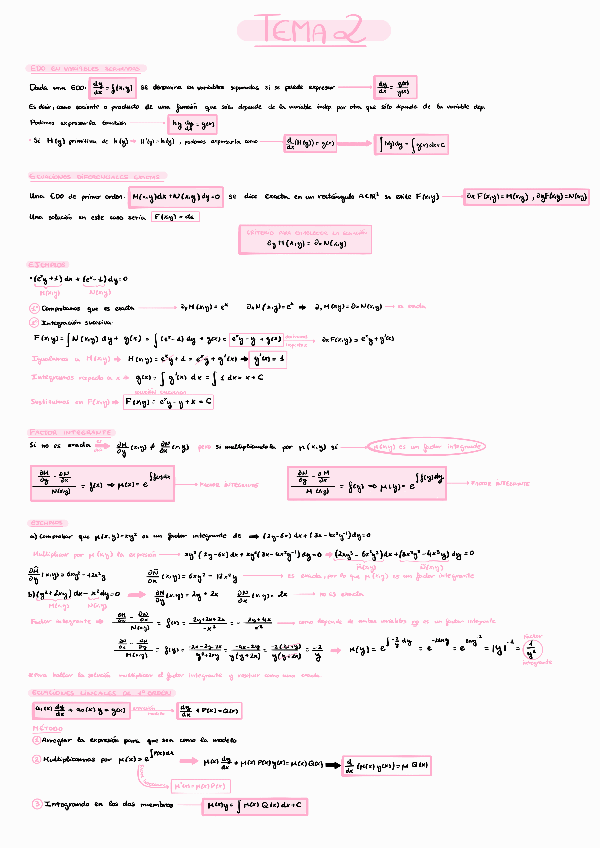 TEMA 2
EDO EN VARIABLES SEPARADAS
Dada una EDO: dy/dx = f(x,y) se denomina en variables separadas si se puede expresar → dy/dx = g(x)/h(y)
Es decir, como cociente o producto de una función que sólo depende de la variable indep por otra que sólo depende de la variable dep.
Podemos expresarla también h(y) dy/dx = g(x)
· Si H(y) primitiva de h(y) → H'(y) = h(y), podemos expresarla como → d/dx (H(y)) = g(x) → ∫h(y)dy = ∫g(x)dx + C
ECUACIONES DIFERENCIALES
Una EDO de primer orden: M(x,y)dx + N(x,y)dy = 0 se dice exacta en un rectángulo A⊂ℝ² si existe F(x,y) → ∂x F(x,y) = M(x,y), ∂y F(x,y) = N(x,y)
Una solución en este caso sería F(x,y) = cte
CRITERIO PARA
∂y M(x,y) = ∂x N(x,y)
EJEMPLO
· (eˣy + 1) dx + (eˣ - 1) dy = 0
M(x,y) N(x,y)
1º Comprobamos que es exacta → ∂y M(x,y) = eˣ ∂x N(x,y) = eˣ ⇒ ∂y M(x,y) = ∂x N(x,y) → es exacta
2º Integración sucesiva
F(x,y) = ∫N(x,y) dy + g(x) = ∫(eˣ - 1) dy + g(x) = eˣy - y + g(x) → ∂x F(x,y) = eˣy + g'(x)
Igualamos a M(x,y) ⇒ M(x,y) = eˣy + 1 = eˣy + g'(x) → g'(x) = 1
Integramos respecto a x ⇒ g(x) = ∫g'(x) dx = ∫1 dx = x + C
Sustituimos en F(x,y) ⇒ F(x,y) = eˣy - y + x = C
FACTOR INTEGRANTE
Si no es exacta ∂M/∂y (x,y) ≠ ∂N/∂x (x,y) pero si multiplicándola por μ(x,y) sí → μ(x,y) es un factor integrante
(∂M/∂y - ∂N/∂x)/N(x,y) = f(x) ⇒ μ(x) = e^∫f(x)dx → FACTOR INTEGRANTE
(∂N/∂x - ∂M/∂y)/M(x,y) = f(y) ⇒ μ(y) = e^∫f(y)dy → FACTOR INTEGRANTE
EJEMPLOS
a) Comprobar que μ(x,y) = xy² es un factor integrante de ⇒ (2y - 6x) dx + (3x - 4x²y⁻¹) dy = 0
Multiplicar por μ(x,y) la expresión → xy²(2y - 6x) dx + xy²(3x - 4x²y⁻¹) dy = 0 ⇒ (2xy³ - 6x²y²) dx + (3x²y² - 4x³y) dy = 0
∂M/∂y (x,y) = 6xy² - 12x²y ∂N/∂x (x,y) = 6xy² - 12x²y → es exacta, por lo que μ(x,y) es un factor integrante
b) (y² + 2xy) dx - x² dy = 0 → ∂M/∂y (x,y) = 2y + 2x ∂N/∂x (x,y) = -2x → no es exacta
M(x,y) N(x,y)
Factor integrante ⇒ (∂M/∂y - ∂N/∂x)/N(x,y) = f(x) = (2y+2x+2x)/-x² = - (2y+4x)/x² → como depende de ambas variables no es un factor integrante
(∂N/∂x - ∂M/∂y)/M(x,y) = f(y) = (-2x-2y-2x)/(y²+2xy) = (-4x-2y)/(y(y+2x)) = -2(2x+y)/(y(y+2x)) = -2/y → μ(y) = e^∫-2/y dy = e^-2ln y = e^ln y⁻² = |y|⁻² = 1/y² factor integrante
Para hallar la solución multiplicar el factor integrante y resolver como una exacta
ECUACIONES LINEALES DE 1º ORDEN
a₁(x) dy/dx + a₀(x) y = g(x) → dy/dx + P(x) = Q(x)
MÉTODO
1 Arreglar la expresión para que sea como la modelo
2 Multiplicamos por μ(x) = e^∫P(x)dx → μ(x) dy/dx + μ(x) P(x) y(x) = μ(x) Q(x) → d/dx (μ(x) y(x)) = μ Q(x)
μ'(x) = μ(x) P(x)
3 Integrando en los dos miembros → μ(x)y = ∫μ(x) Q(x) dx + C